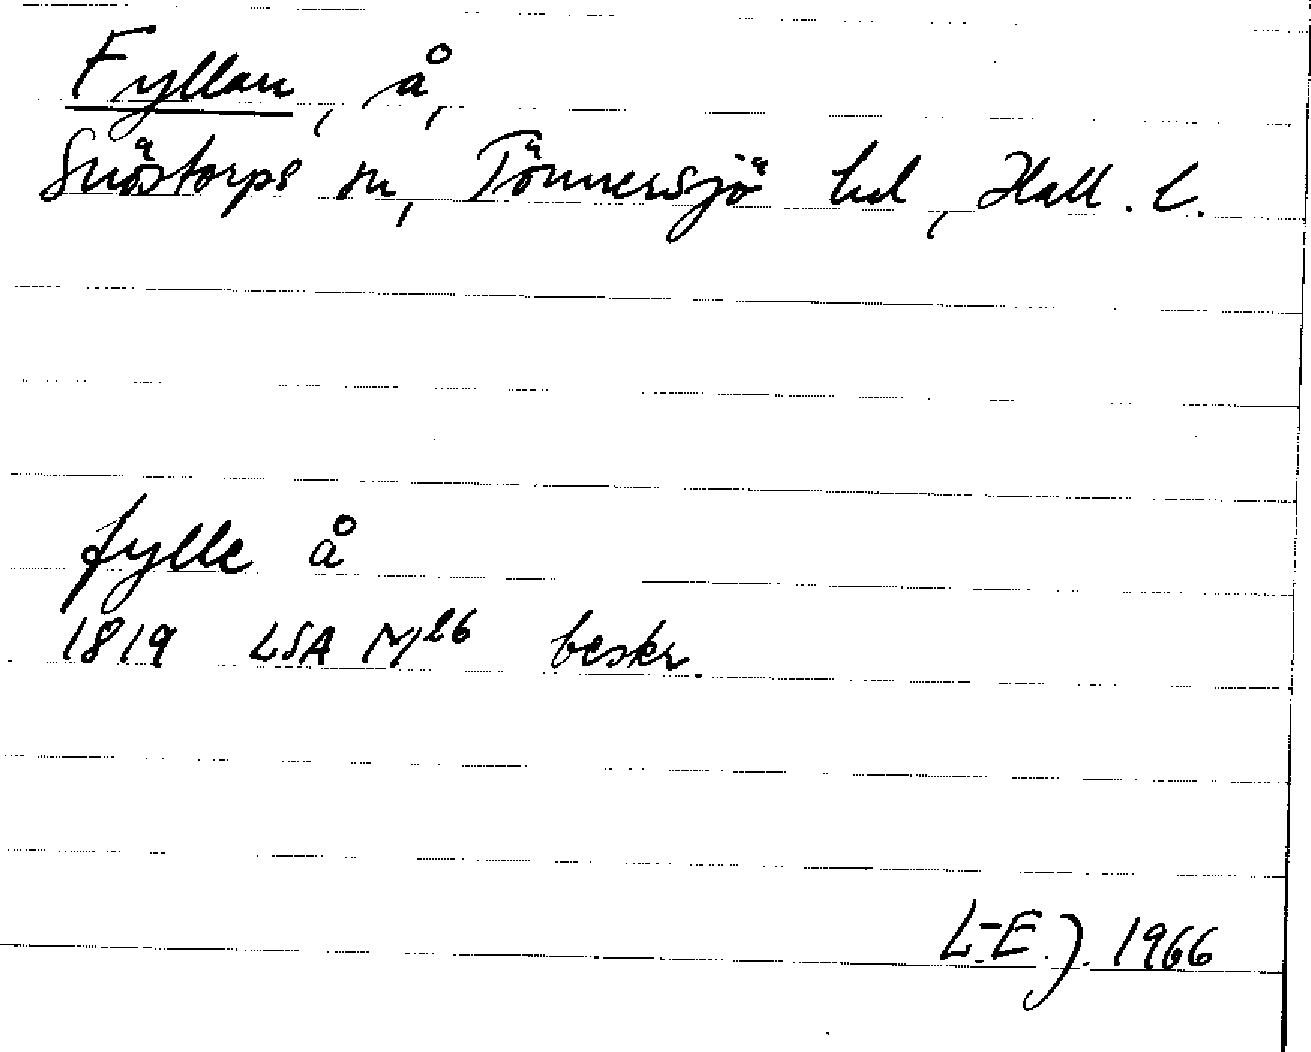 Fyllan, å,
Snöstorps sn, Tönnersjö hd, Hall. l.
fylle å
1819 LSA M26 beskr.
L-E.J. 1966